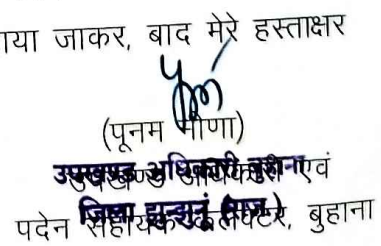 या जाकर, बाद मेरे हस्ताक्षर
(पूनम मीणा)
उपखण्ड अधिकारी बुहाना
उपखण्ड अधिकारी एवं
जिला झुन्झुनूं (राज.)
पदेन सहायक कलक्टर, बुहाना